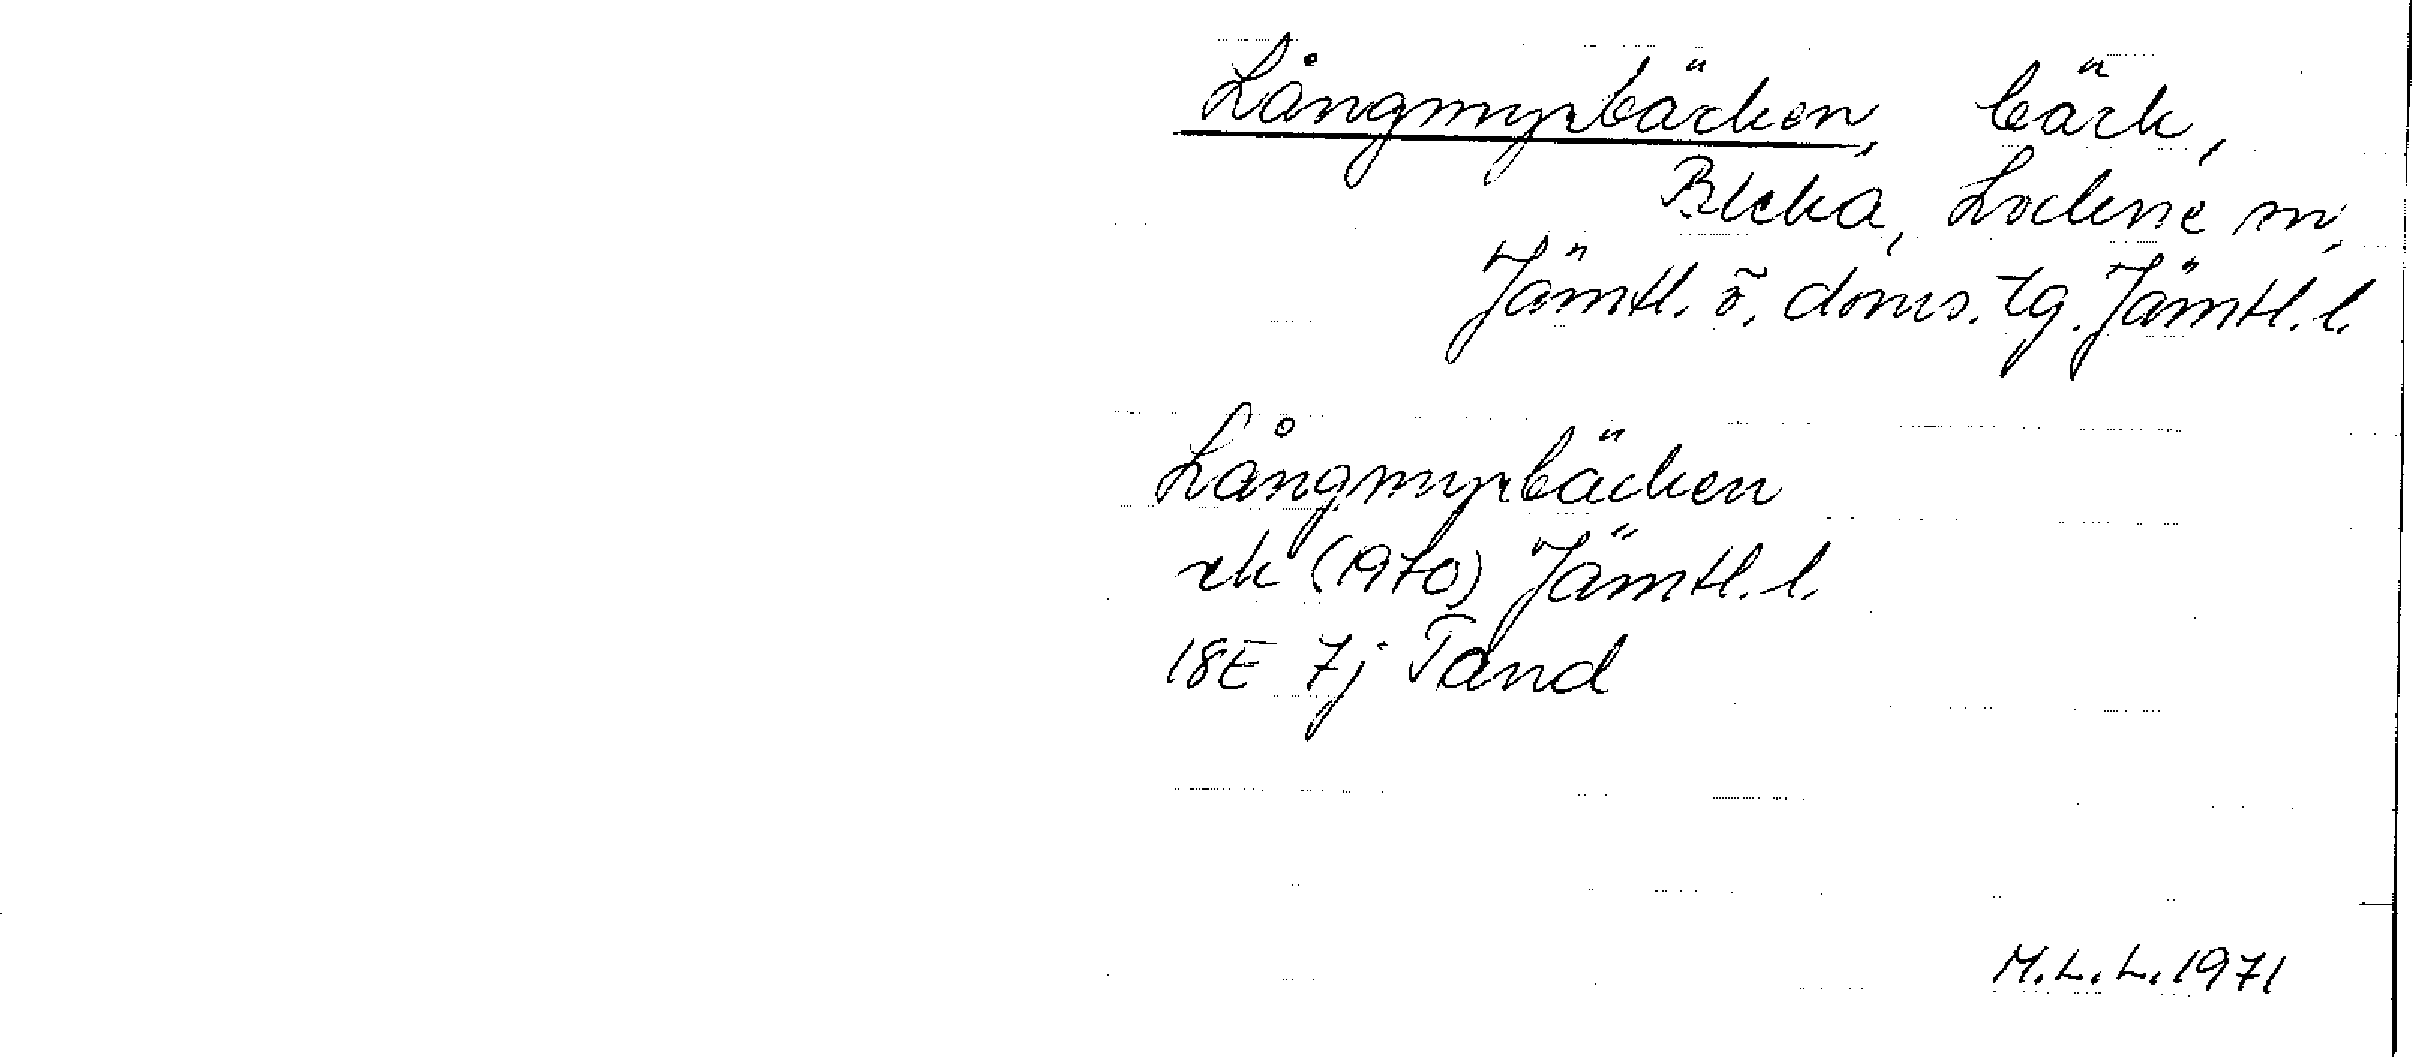 Långmyrbäcken, bäck,
Bleka, Lockne sn,
Jämtl. ö. doms. tg. Jämtl. l.
Långmyrbäcken
rk (1970) Jämtl. l.
18E 7j Tand
M.L.L. 1971